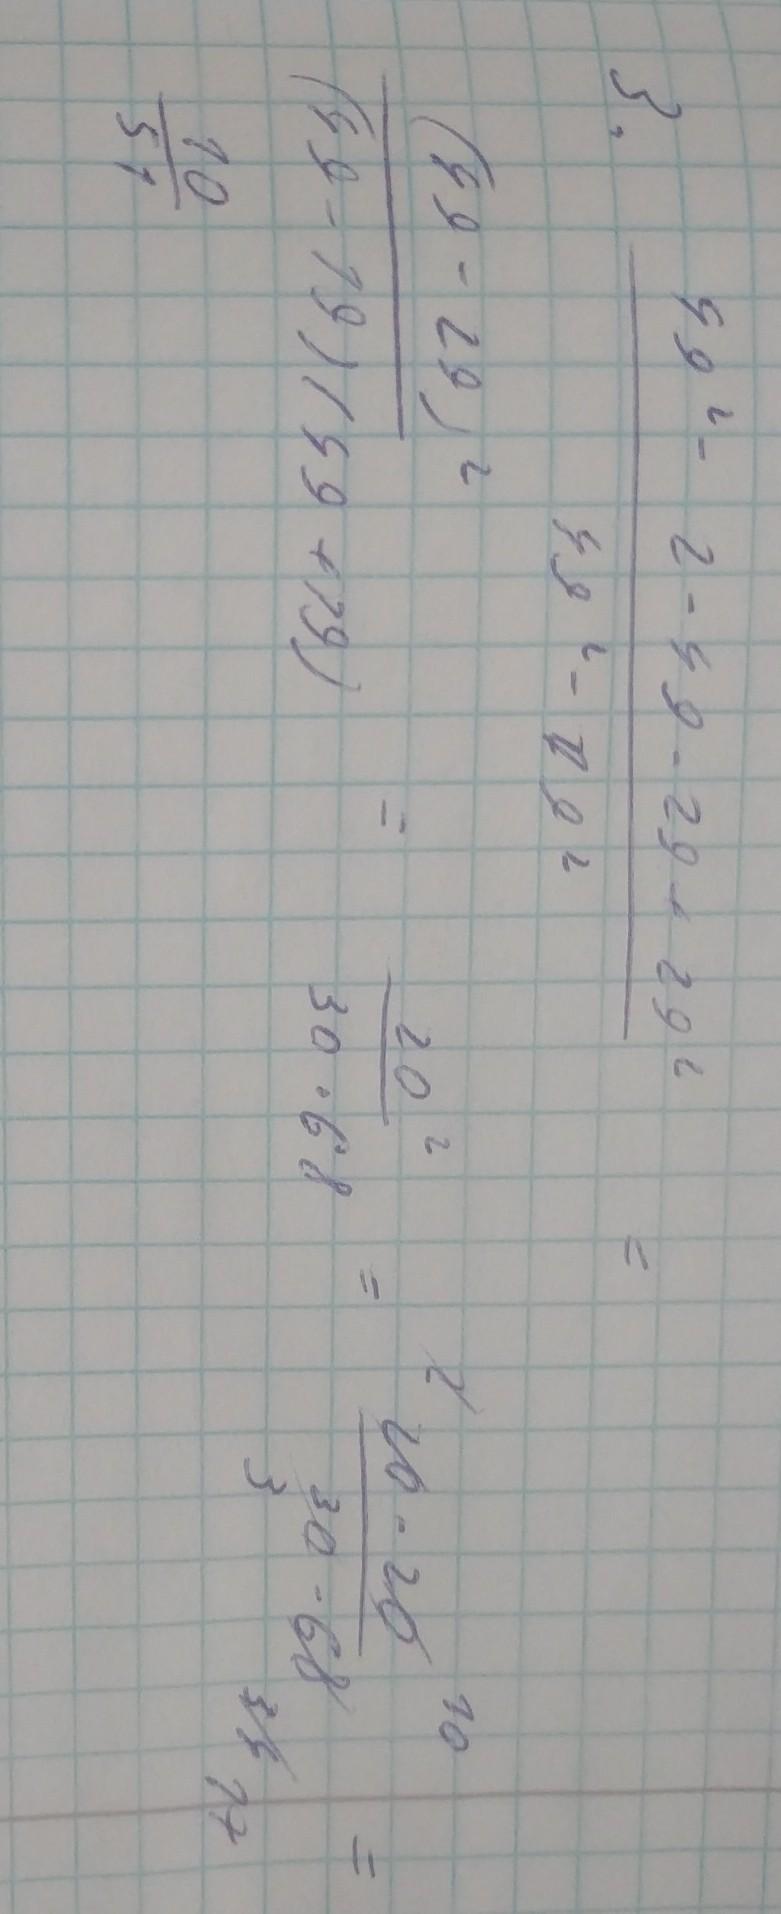 3.
49² - 2 · 49 · 29 + 29²
49² - 19²
=
(49 - 29)²
(49 - 19)(49 + 19)
=
20²
30 · 68
=
2
20 · 20
10
30 · 68
3
34
17
=
10
51